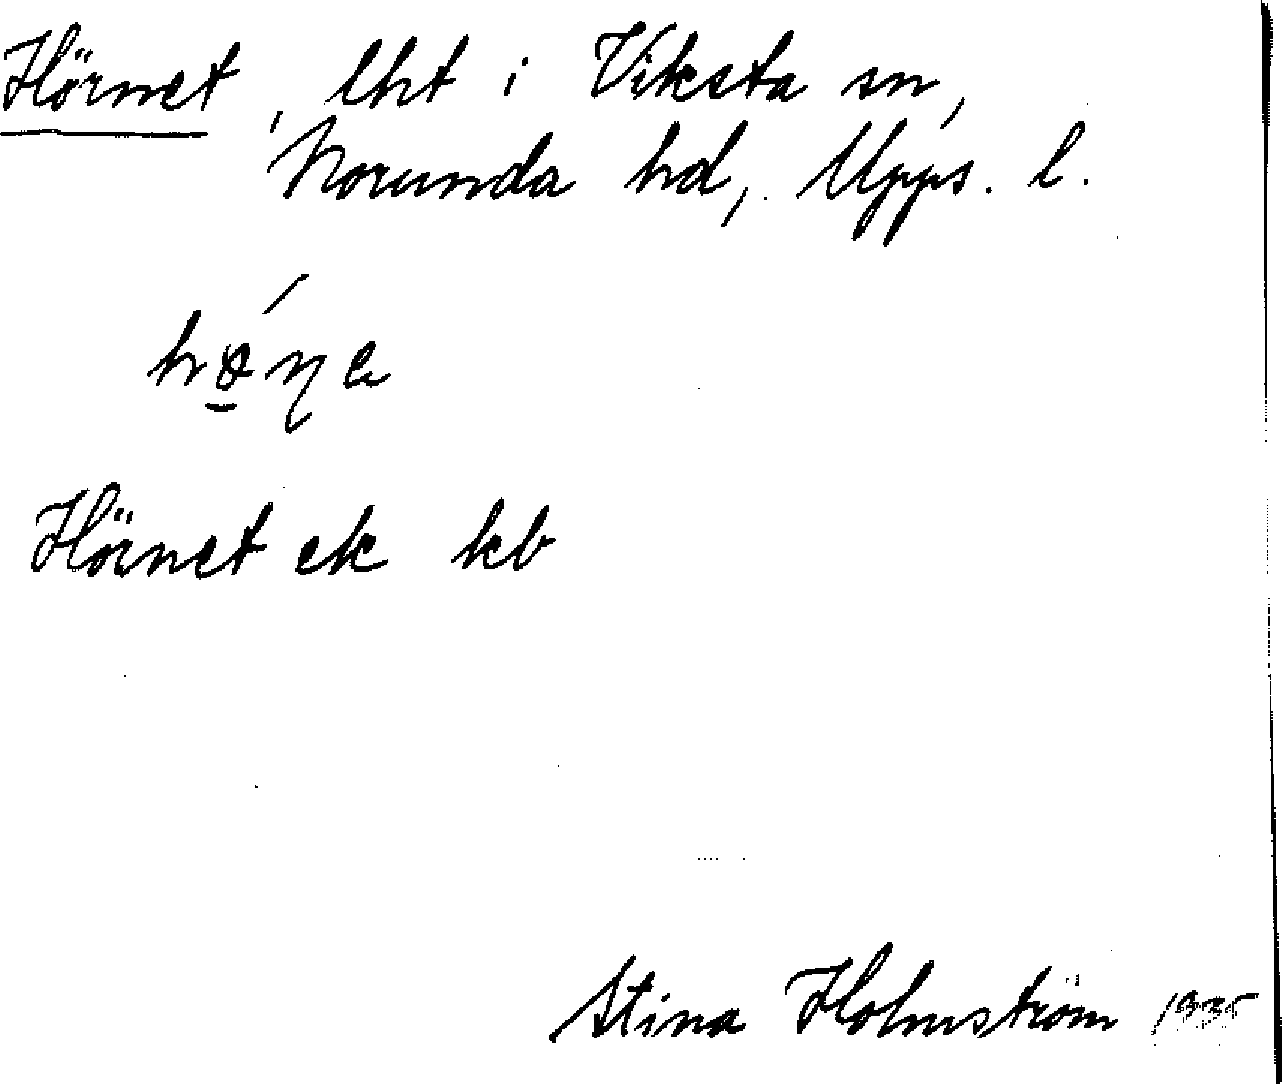 Hörnet, lht i Viksta sn,
Norunda hd, Upps. l.
Hörnet ek kb
Stina Holmström 1935